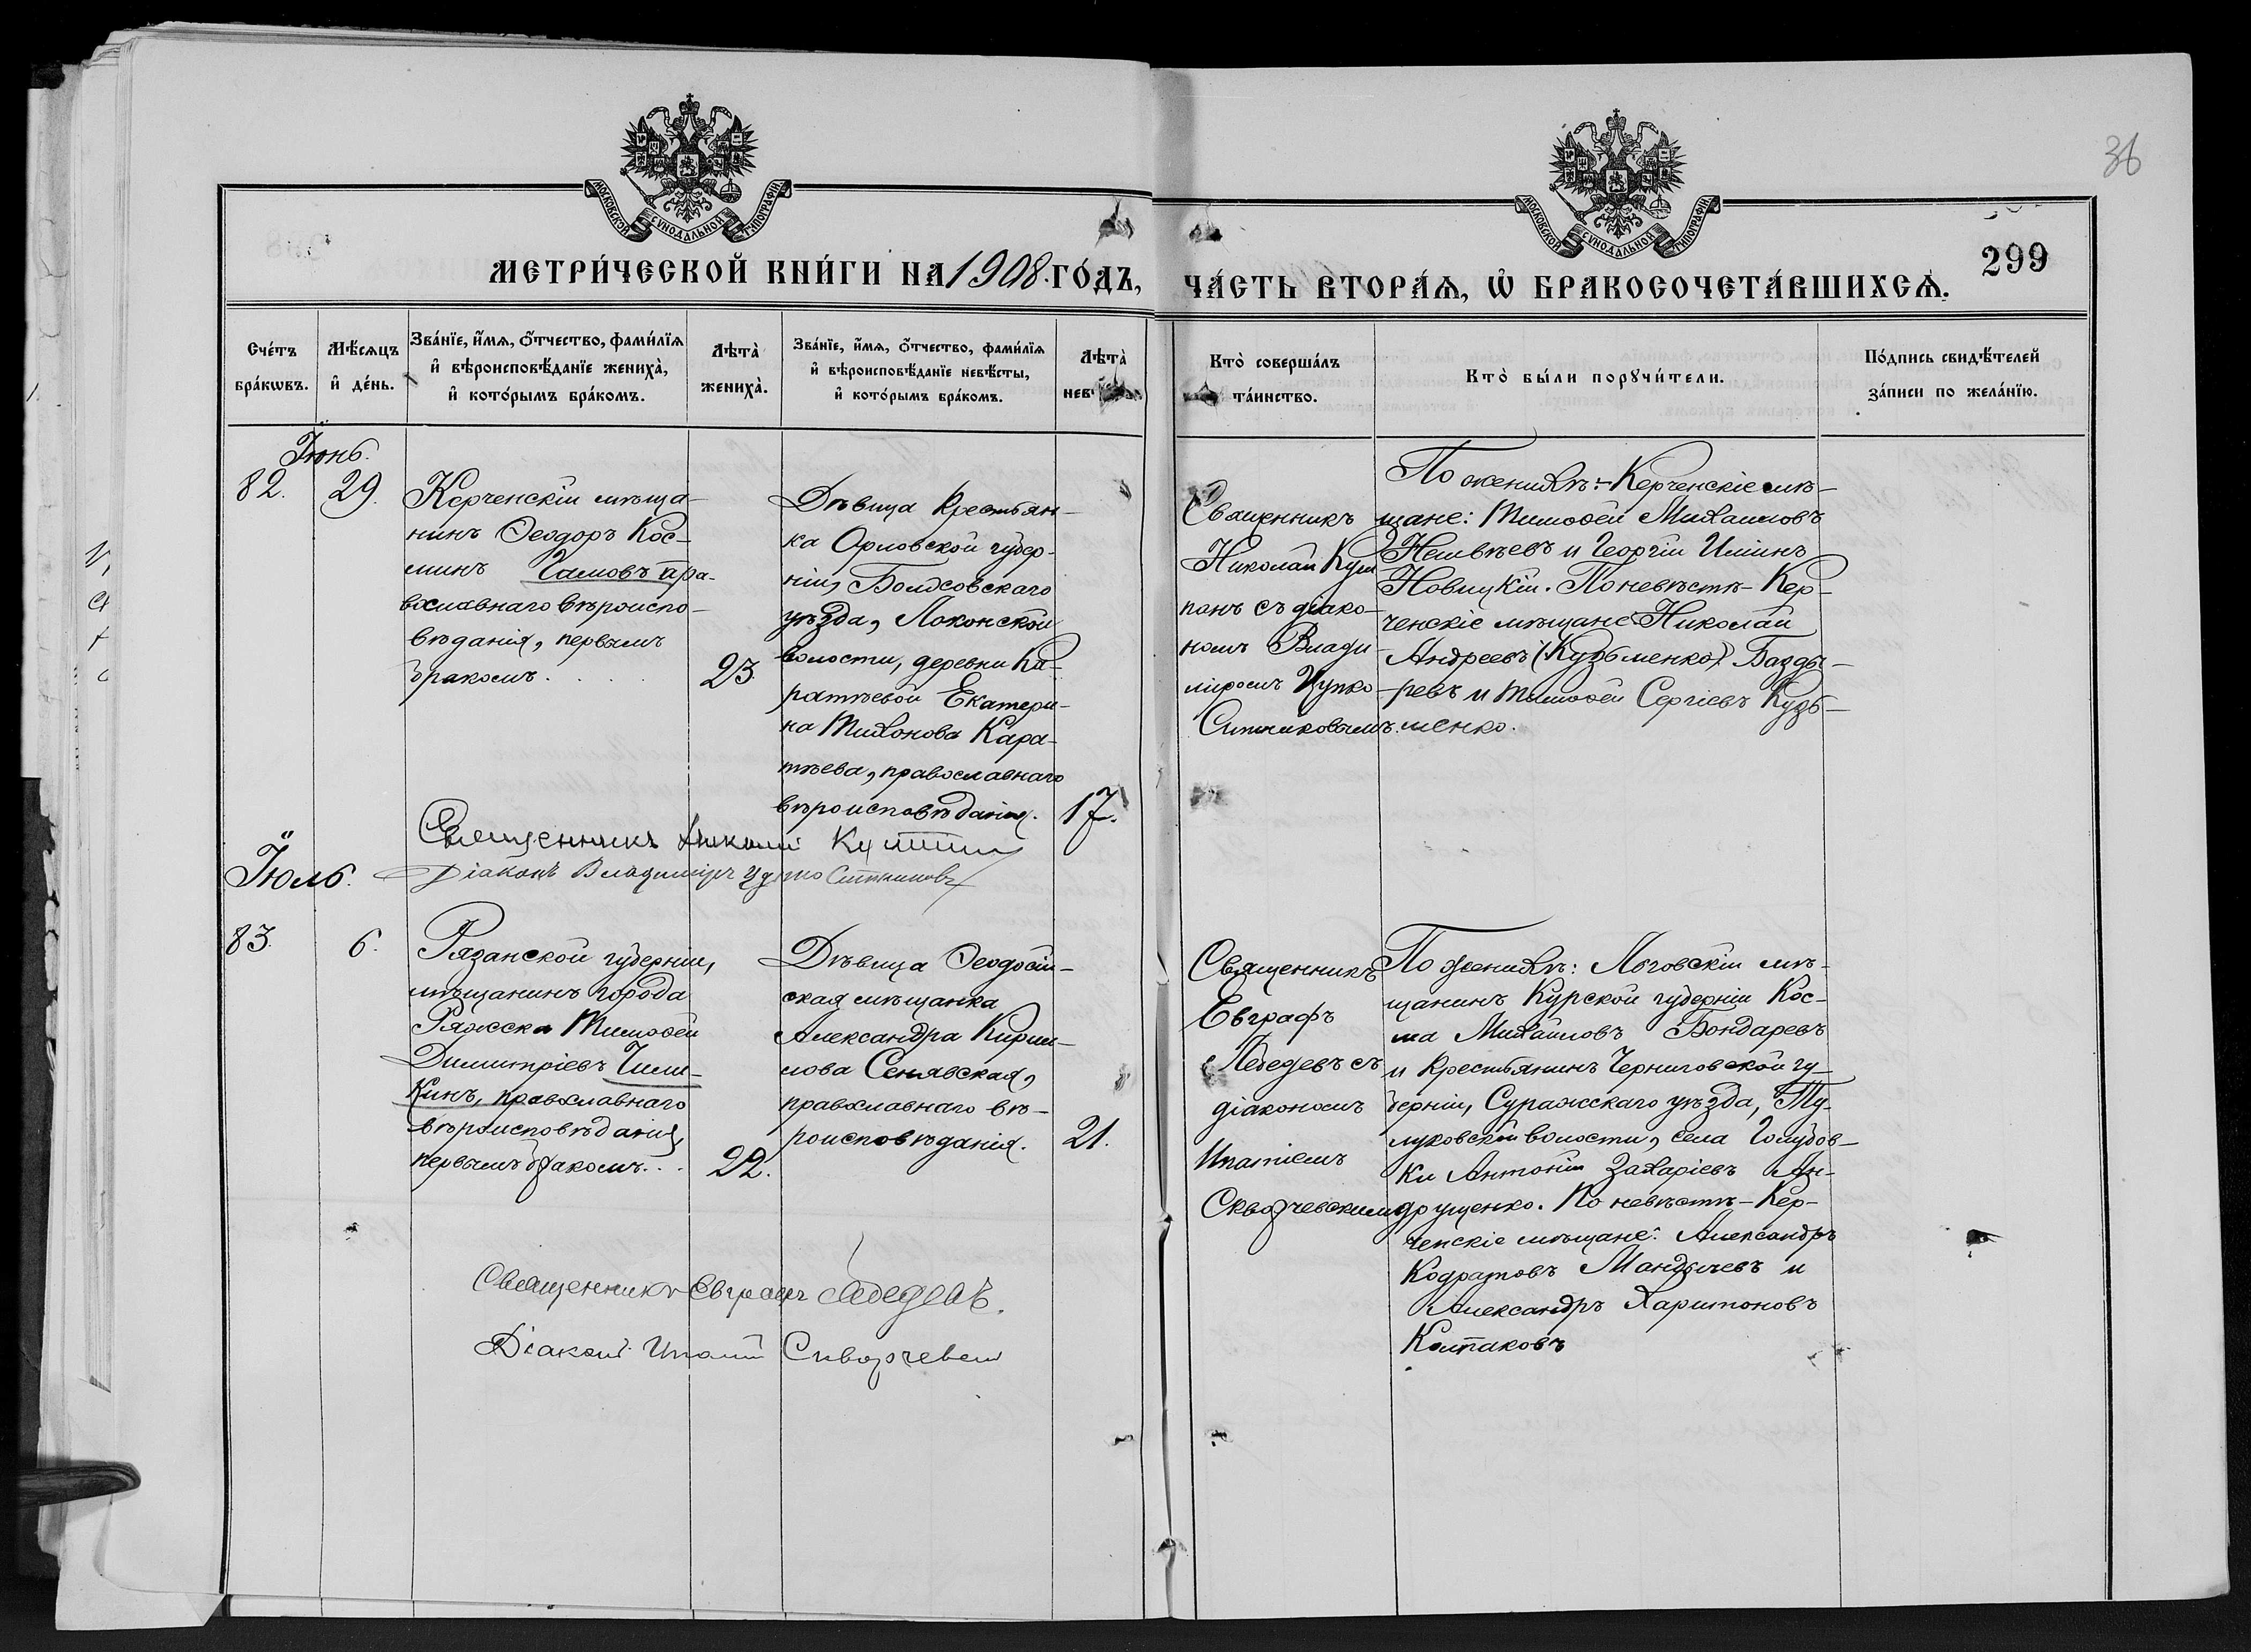 36
МОСКОВСКОЙ СѴНОДАЛЬНОЙ ТИПОГРАФІИ
МОСКОВСКОЙ СѴНОДАЛЬНОЙ ТИПОГРАФІИ
299
МЕТРИ́ЧЕСКОЙ КНИ́ГИ НА 1908. ГО́ДЪ,
ЧА́СТЬ ВТОРА́Ѧ, Ѡ҆ БРАКОСОЧЕТА́ВШИХСѦ.
Счéтъ бра́кѡвъ.
Мѣ́сѧцъ и҆ де́нь.
Зва́нїе, и҆́мѧ, ѻ҆́тчество, фами́лїѧ
и҆ вѣроисповѣ́данїе жениха̀,
и҆ кото́рымъ бра́комъ.
Лѣта̀ жениха̀.
Зва́нїе, и҆́мѧ, ѻ҆́тчество, фами́лїѧ
и҆ вѣроисповѣ́данїе невѣ́сты,
и҆ кото́рымъ бра́комъ.
Лѣта̀
Кто̀ соверша́лъ
та́инство.
Кто̀ бы́ли порꙋчи́тели.
По́дпись свидѣ́телей
за́писи по жела́нїю.
Іюнь.
82.
29.
Керченскій мѣща-
нинъ Ѳеодоръ Кос-
минъ Чамовъ пра-
вославнаго вѣроиспо-
вѣданія, первымъ
бракомъ.
23.
Дѣвица крестьян-
ка Орловской губер-
ніи, Болховскаго
уѣзда, Локонской
волости, деревни Ка-
ратѣевой Екатери-
на Тихонова Кара-
тѣева, православнаго
вѣроисповѣданія.
17.
Священникъ
Николай Куш
панъ съ діако-
номъ Влади-
міромъ Цупко
Ситниковымъ.
По женихѣ:- Керченскіе мѣ-
щане: Тимоѳей Михаиловъ
и Георгій Ильинъ
Новицкій. По невѣстѣ- Кер-
ченскіе мѣщане Николай
Андреевъ (Кузьменко) Базды-
ревъ и Тимоѳей Сергіевъ Кузь-
менко.
Священникъ Николай
Діаконъ Владиміръ Цупко Ситниковъ
Іюль.
83.
6.
Рязанской губерніи,
мѣщанинъ города
Ряжска Тимоѳей
Димитріевъ Чили-
кинъ, православнаго
вѣроисповѣданія,
первымъ бракомъ...
22.
Дѣвица Ѳеодосій-
ская мѣщанка
Александра Кирил-
лова Сенявская,
православнаго вѣ-
роисповѣданія.
21.
Священникъ
Евграфъ
Лебедевъ съ
діакономъ
Ипатіемъ
Скворчевскимъ
По женихѣ: Льговскій мѣ-
щанинъ Курской губерніи Кос-
ма Михаиловъ Бондаревъ
и крестьянинъ Черниговской гу-
берніи, Суражскаго уѣзда, Ту-
луковской волости, села Голубов-
ки Антоній Захаріевъ Ан-
друщенко. По невѣстѣ- Кер-
ченскіе мѣщане: Александръ
Кодратовъ Мандычевъ и
Александръ Харитоновъ
Колпаковъ
Священникъ Евграфъ Лебедевъ.
Діаконъ Ипатій